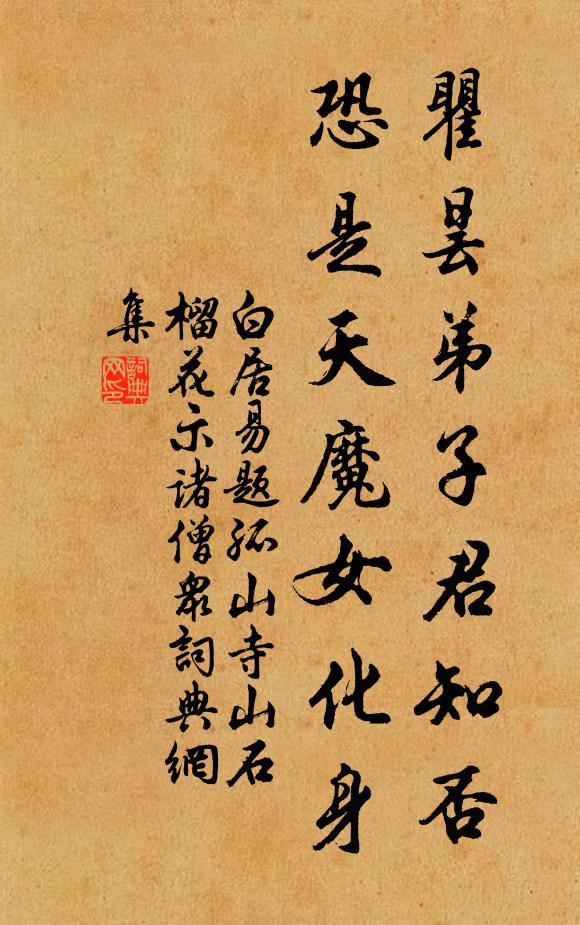 瞿昙弟子君知否
恐是天魔女化身
白居易题孤山寺山石
榴花示诸僧衆詞典網
集
詞典
网印